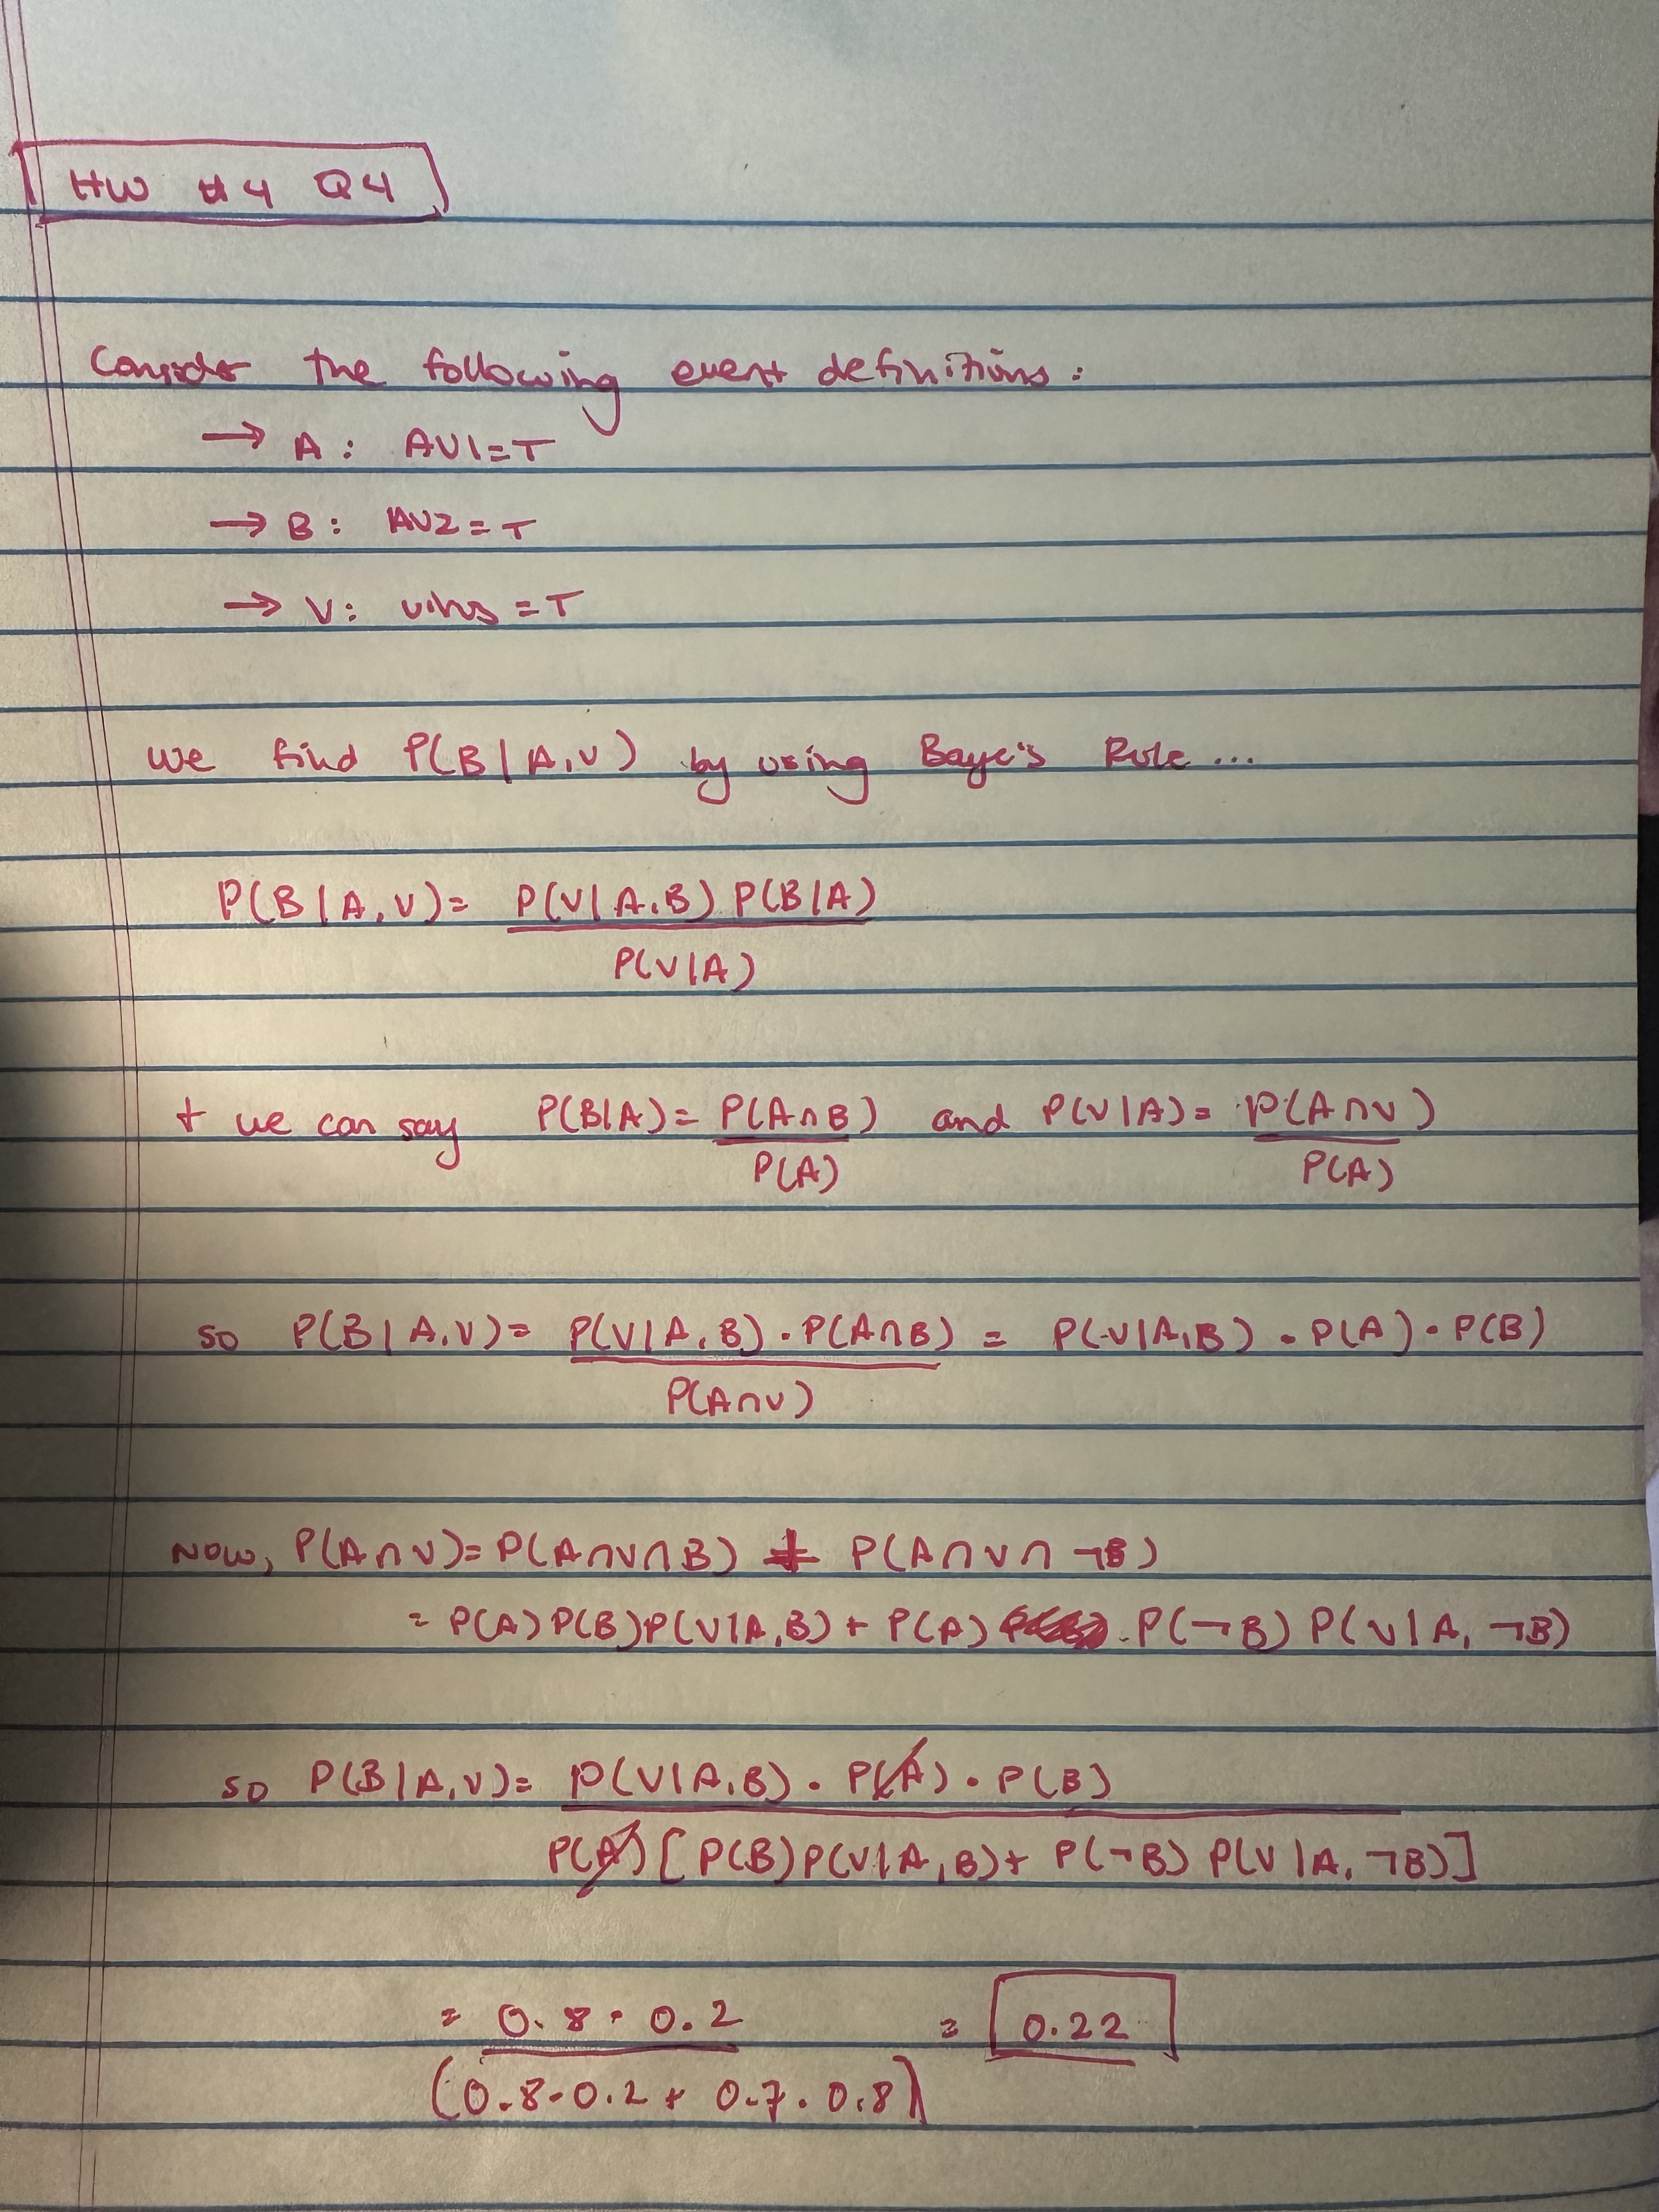 HW #4 Q4
Consider the following event definitions:
→ A: AV1=T
→ B: AV2=T
→ V: virus=T
we find P(B|A,V) by using Baye's Rule...
P(B|A,V)= P(V|A,B) P(B|A)
P(V|A)
+ we can say P(B|A)= P(A∩B) and P(V|A)= P(A∩V)
P(A) P(A)
so P(B|A,V)= P(V|A,B) · P(A∩B) = P(V|A,B) · P(A) · P(B)
P(A∩V)
NOW, P(A∩V)= P(A∩V∩B) + P(A∩V∩¬B)
= P(A)P(B)P(V|A,B) + P(A) · P(¬B) P(V|A, ¬B)
so P(B|A,V)= P(V|A,B) · P(A) · P(B)
P(A)[P(B)P(V|A,B)+ P(¬B) P(V|A, ¬B)]
= 0.8 · 0.2 = 0.22
(0.8·0.2 + 0.7·0.8)